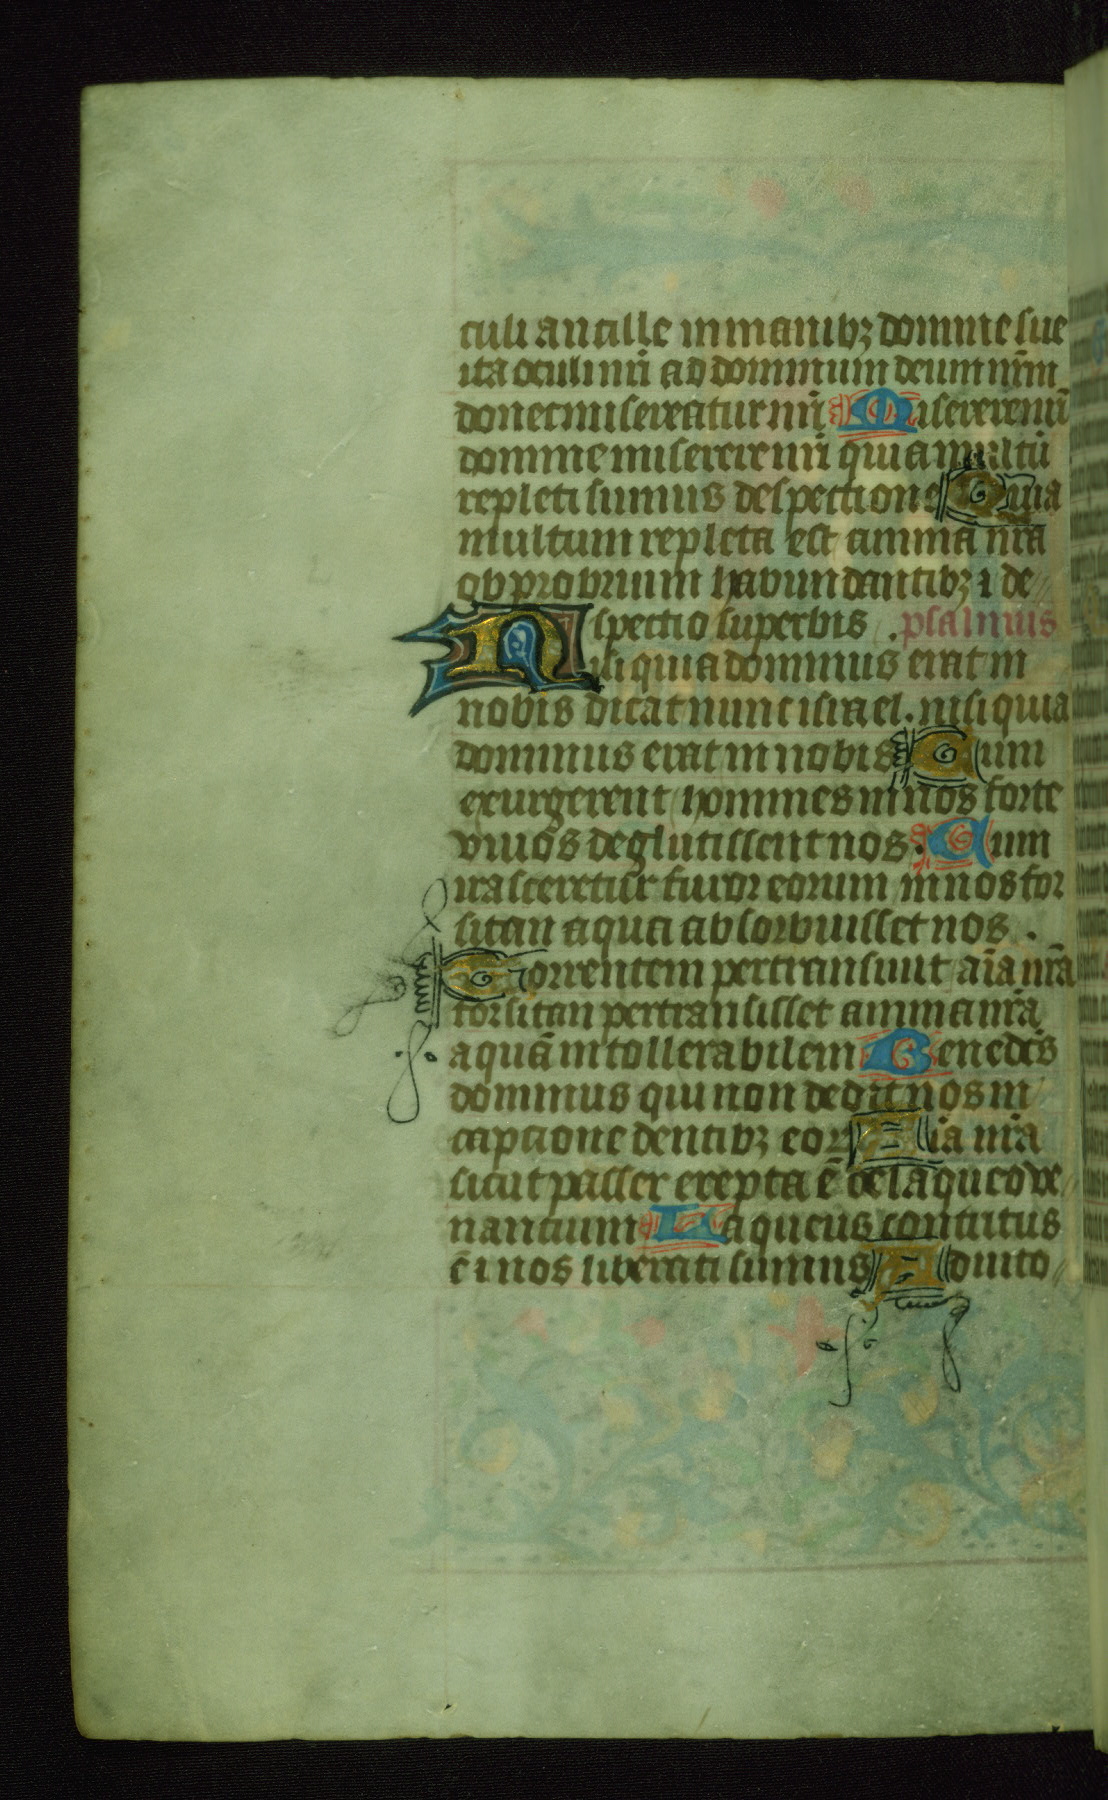 culi ancille in manibꝫ domine sue
ita oculi nr̄i ad dominum deum nr̄m
donec misereatur nr̄i Miserere nr̄i
domine miserere nr̄i quia multū
repleti sumus despectione Quia
multum repleta est anima nr̄a
obprobrium habundantibꝫ ⁊ de
spectio superbis . psalmus
Nisi quia dominus erat in
nobis dicat nunc israel. nisi quia
dominus erat in nobis Cum
exurgerent homines in nos forte
viuos deglutissent nos. Cum
irasceretur furor eorum in nos for
sitan aqua absorbuisset nos .
Torrentem pertransiuit aīa nr̄a
forsitan pertransisset anima nr̄a
aquā intollerabilem Benedc̄s
dominus qui non dedit nos in
captione dentibꝫ eoꝝ Aīa nr̄a
sicut passer erepta ē de laqueo ve
nantium Laqueus contritus
ē ⁊ nos liberati sumus Adiuto